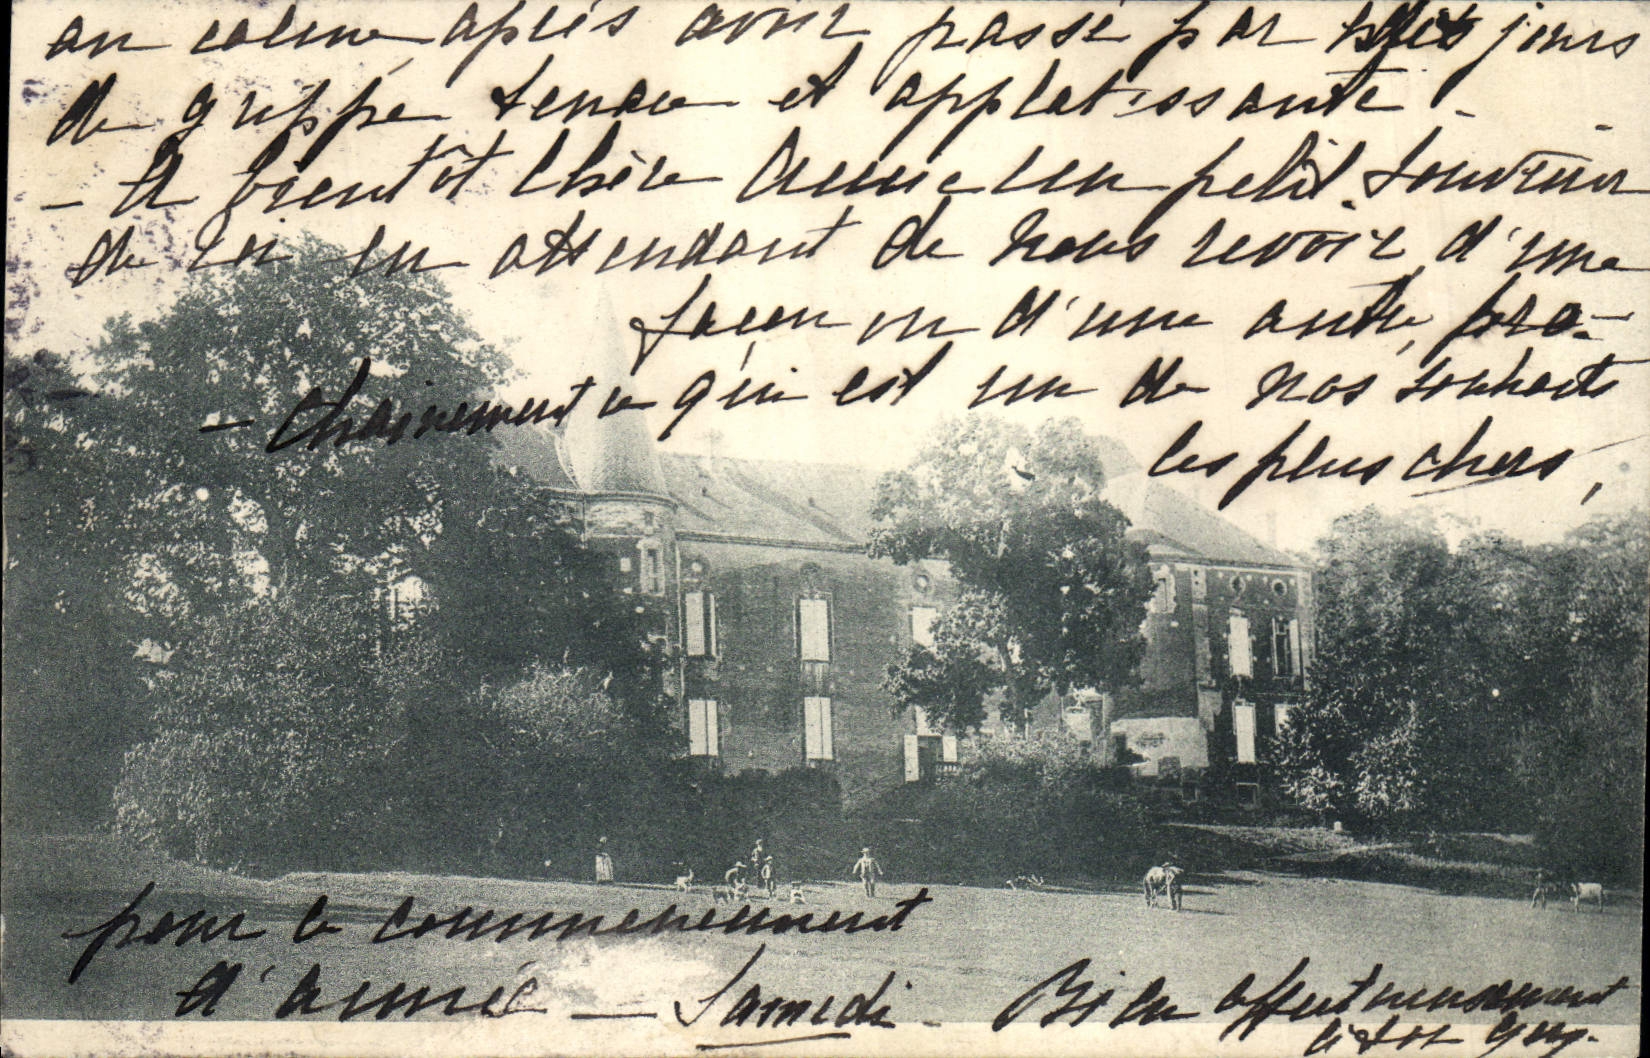 au calme après avoir passé par jours
de grippe tenace et applatissante -
- A bientôt chère Amie un petit souvenir
de ici en attendant de nous revoir d'une
façon ou d'une autre, pro-
- chainement ce qui est un de nos souhaits
les plus chers,
pour le commencement
d'année — Samedi - Bien affectueusement
à toi